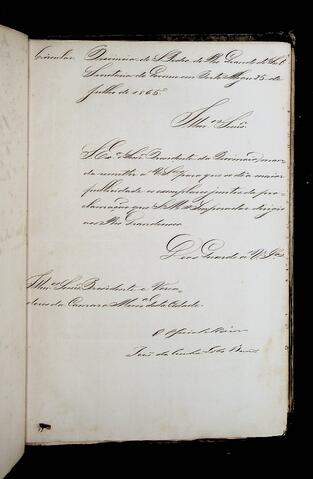 Circular Provincia de S. Pedro do Rio Grande do Sul
Secretaria do Governo em Porto Alegre 25 de
Julho de 1865.
Illmos Senres
S. Exa o Senr Presidente da Provincia man-
da remetter a V. Sas para que se dê a maior
publicidade os exemplares juntos da pro-
clamação que S. M. o Imperador dirigio
aos Rio Grandenses
Deos Guarde a V. Sas
Illmos Senres Presidente e Verea-
dores da Camara Mual da Cidade
O Official Maior
da Cunha